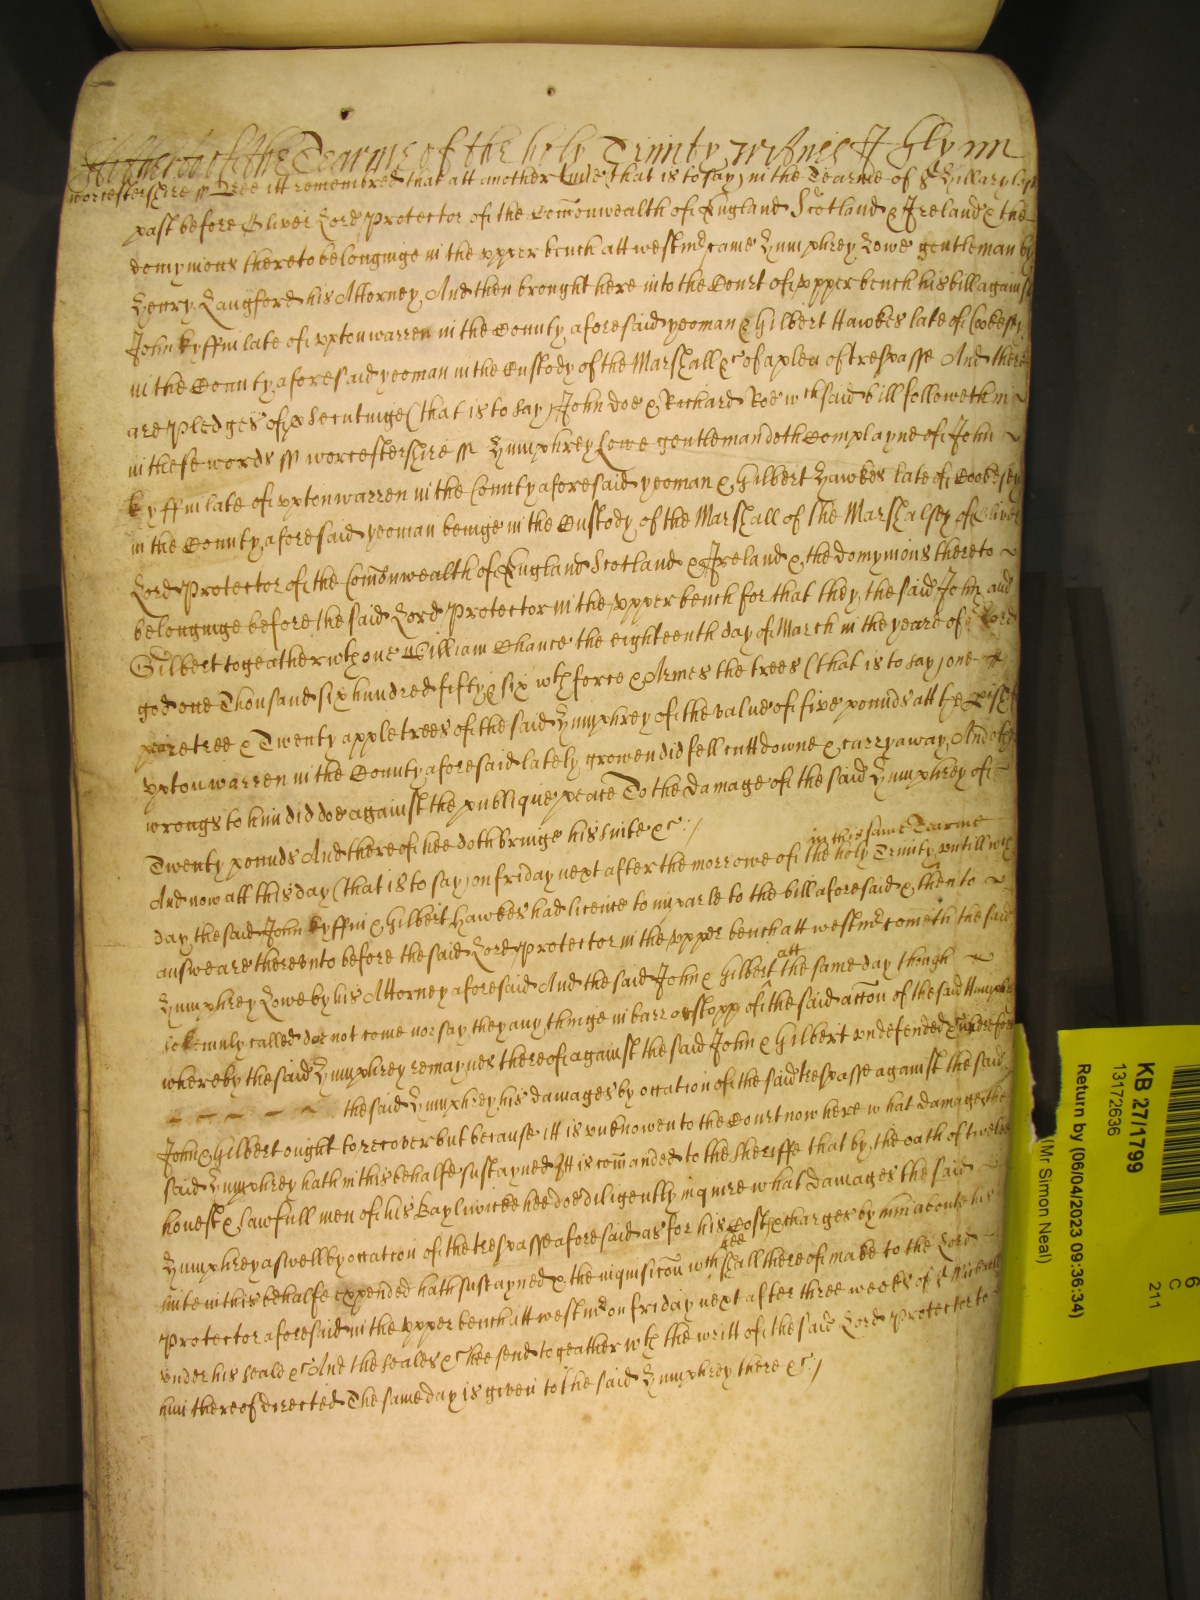 Hitherto of the Tearme of the holy Trinity witnes J Glynn
Worcestershire ss Bee itt remembred that att another time (that is to say) in the Tearme of St Hillary last
past before Oliver Lord Protector of the Com̄onwealth of England Scotland & Ireland & the
domynions thereto belonginge in the vpper bench att westmr came Humphrey Lowe gentleman by
Henry Langford his Attorney And then brought here into the Court of vpper bench his bill against
John kyffin late of vpton warren in the County aforesaid yeoman & Gilbert Hawkes late of Cooksey
in the County aforesaid yeoman in the Custody of the Marshall &c of a plea of trespasse And there
are pledges of prosecutinge (that is to say) John doe & Richard Roe wch said bill followeth in
in these words ss worcestershire ss Humphrey Lowe gentleman doth Complayne of John
kyffin late of vpton warren in the County aforesaid yeoman & Gilbert Hawkes late of Cooksey
in the County aforesaid yeoman beinge in the Custody of the Marshall of the Marshalsey of Oliver
Lord Protector of the Com̄onwealth of England Scotland & Ireland & the domynions thereto
belonginge before the said Lord Protector in the vpper bench for that they the said John and
Gilbert togeather wth one William Chance the eighteenth day of March in the yeare of or Lord
god one Thousand six hundred fifty & six wth force & Armes the trees (that is to say) one
peare tree & Twenty apple trees of the said Humphrey of the value of five pounds att the Pish
vpton warren in the County aforesaid lately growen did fell cutt downe & carry away And other
wrongs to him did doe against the publique peace To the damage of the said Humphrey of
Twenty pounds And thereof hee doth bringe his suite &c
in this same Tearme
And now att this day (that is to say) on friday next after the morrowe of the holy Trinity vntill wch
day the said John kyffin & Gilbert Hawkes had licence to imparle to the bill aforesaid & then to
answeare therevnto before the said Lord Protector in the vpper bench att westmr cometh the said
Humphrey Lowe by his Attorney aforesaid And the said John & Gilbert att the same day though
solemnly called doe not come nor say they any thinge in barr or stopp of the said acc̄on of the said Humphrey
whereby the said Humphrey remaynes thereof against the said John & Gilbert vndefended & therefore
the said Humphrey his damages by occation of the said trespasse against the said
John & Gilbert ought to recover but because itt is vnknowen to the Court now here what damages the
said Humphrey hath in this behalfe sustayned Itt is com̄anded to the Sheriffe that by the oath of twelve
honest & lawfull men of his Bayliwicke hee doe diligently inquire what damages the said
Humphrey aswell by occation of the trespasse aforesaid as for his costs & charges by him aboute his
suite in this behalfe expended hath sustayned & the inquisic̄on wch hee shall thereof make to the Lord
Protector aforesaid in the vpper bench att westmr on friday next after three weekes of St Michaell
vnder his seale &c And the seales &c hee send togeather wth the writt of the said Lord Protector to
him thereof directed The same day is given to the said Humphrey there &c
KB 27/1799
13172636
Return by (06/04/2023 09:36:34)
(Mr Simon Neal)
6
C
211